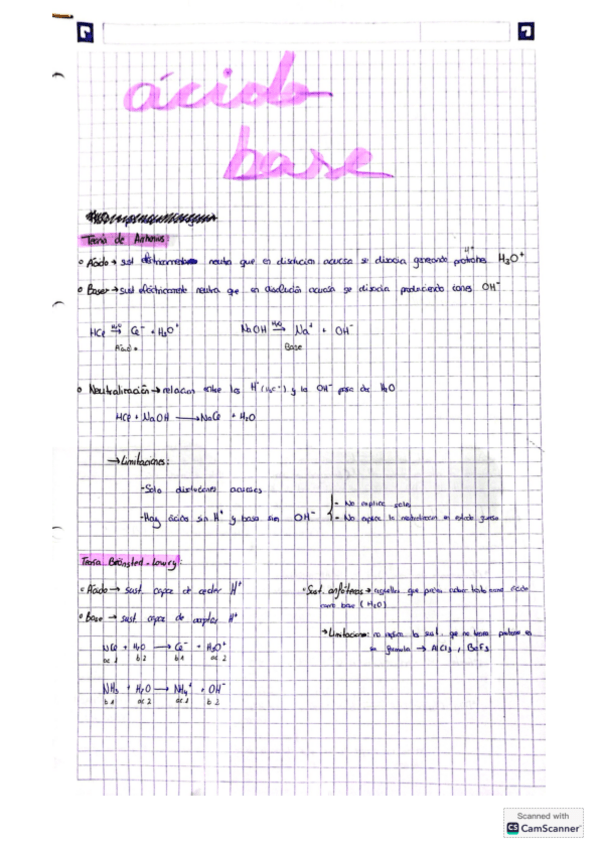 ácido
base
Teoría de Arrhenius:
• Ácido → sust. neutra que en disolución acuosa se disocia generando protones H₃O⁺
H⁺
• Base → sust eléctricamente neutra que en disolución acuosa se disocia produciendo iones OH⁻
HCl ⇌ Cl⁻ + H₃O⁺ NaOH → Na⁺ + OH⁻
H₂O H₂O
Ácido Base
• Neutralización → relación entre los H⁺ (H₃O⁺) y los OH⁻ para dar H₂O
HCl + NaOH → NaCl + H₂O
→ Limitaciones:
- Sólo disoluciones acuosas
- Hay ácidos sin H⁺ y bases sin OH⁻
- No explica sales
- No explica la neutralización en estado gaseoso
Teoría Brönsted-Lowry:
• Ácido → sust. capaz de ceder H⁺
• Base → sust. capaz de aceptar H⁺
HCl + H₂O → Cl⁻ + H₃O⁺
ac 1 b 2 b 1 ac 2
NH₃ + H₂O → NH₄⁺ + OH⁻
b 1 ac 2 ac 1 b 2
• Sust. anfóteras → aquellas que pueden actuar tanto como ácido
como base (H₂O)
→ Limitaciones: no explica la sust. que no tienen protones en
su fórmula → AlCl₃, BeF₃
Scanned with
CS CamScanner